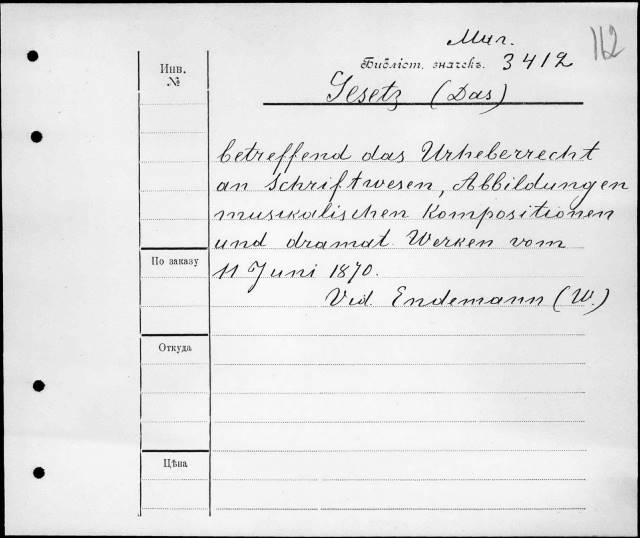 Миг. 112
Библіот. значекъ. 3412
Инв.
№
Gesetz (Das)
betreffend das Urheberrecht
an Schriftwesen, Abbildungen
musikalischen Kompositionen
und dramat. Werken vom
По заказу
11 Juni 1870.
Vid. Endemann (W.)
Откуда
Цѣна